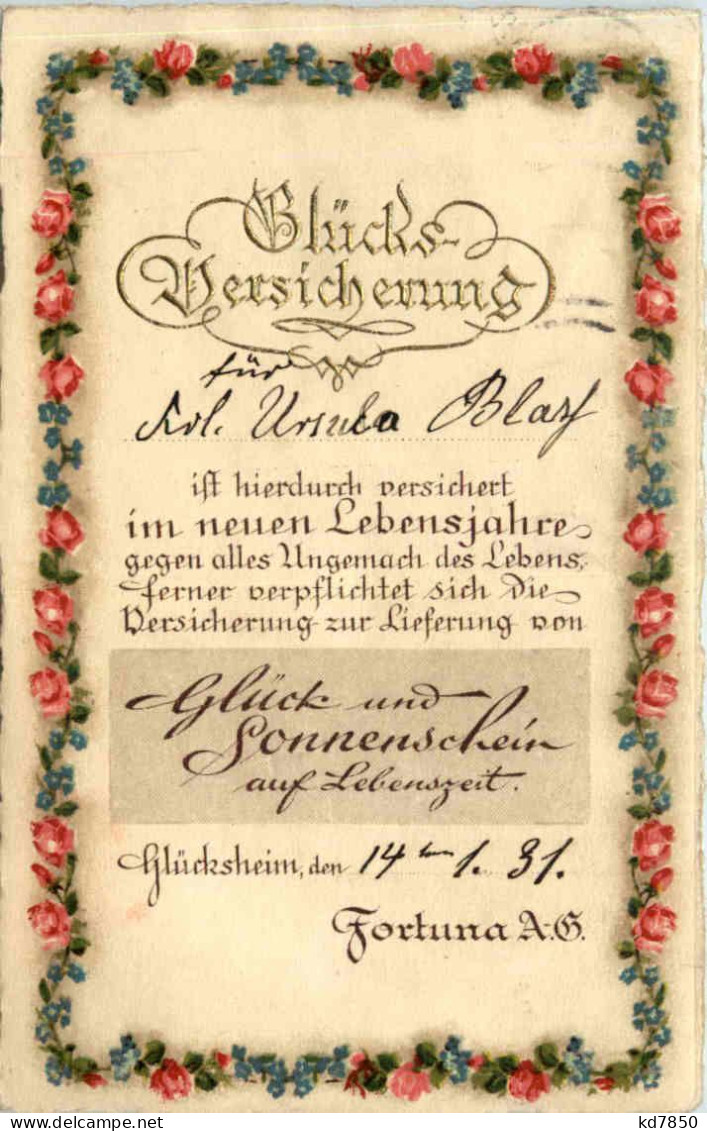 Glücks-
Versicherung
für
Frl. Ursula
ist hierdurch versichert
im neuen Lebensjahre
gegen alles Ungemach des Lebens,
ferner verpflichtet sich die
Versicherung zur Lieferung von
Glück und
Sonnenschein
auf Lebenszeit.
Glücksheim, den 14ten 1. 31.
Fortuna A.G.
kd7850